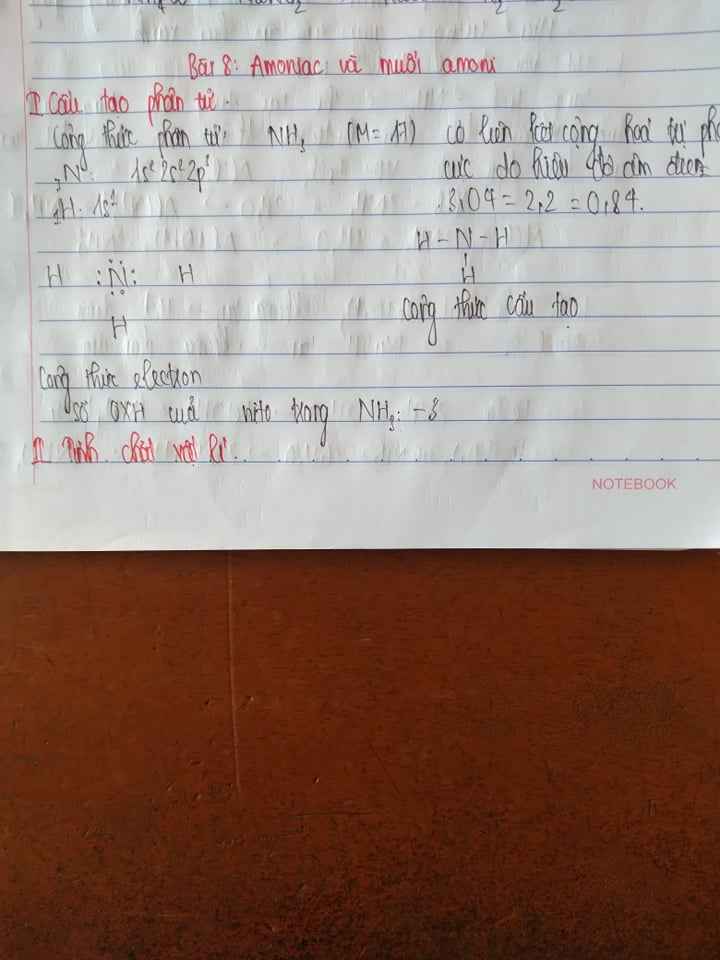 Bài 8: Amoniac và muối amoni
I Cấu tạo phân tử.
Công thức phân tử: NH3 (M = 17) có liên kết cộng hoá trị
7N: 1s² 2s² 2p³ cực do hiệu độ âm điện
1H: 1s¹ 3,04 - 2,2 = 0,84.
H - N - H
H :N: H H
H công thức cấu tạo
Công thức electron
số OXH của nitơ trong NH3: -3
II Tính chất vật lí.
NOTEBOOK